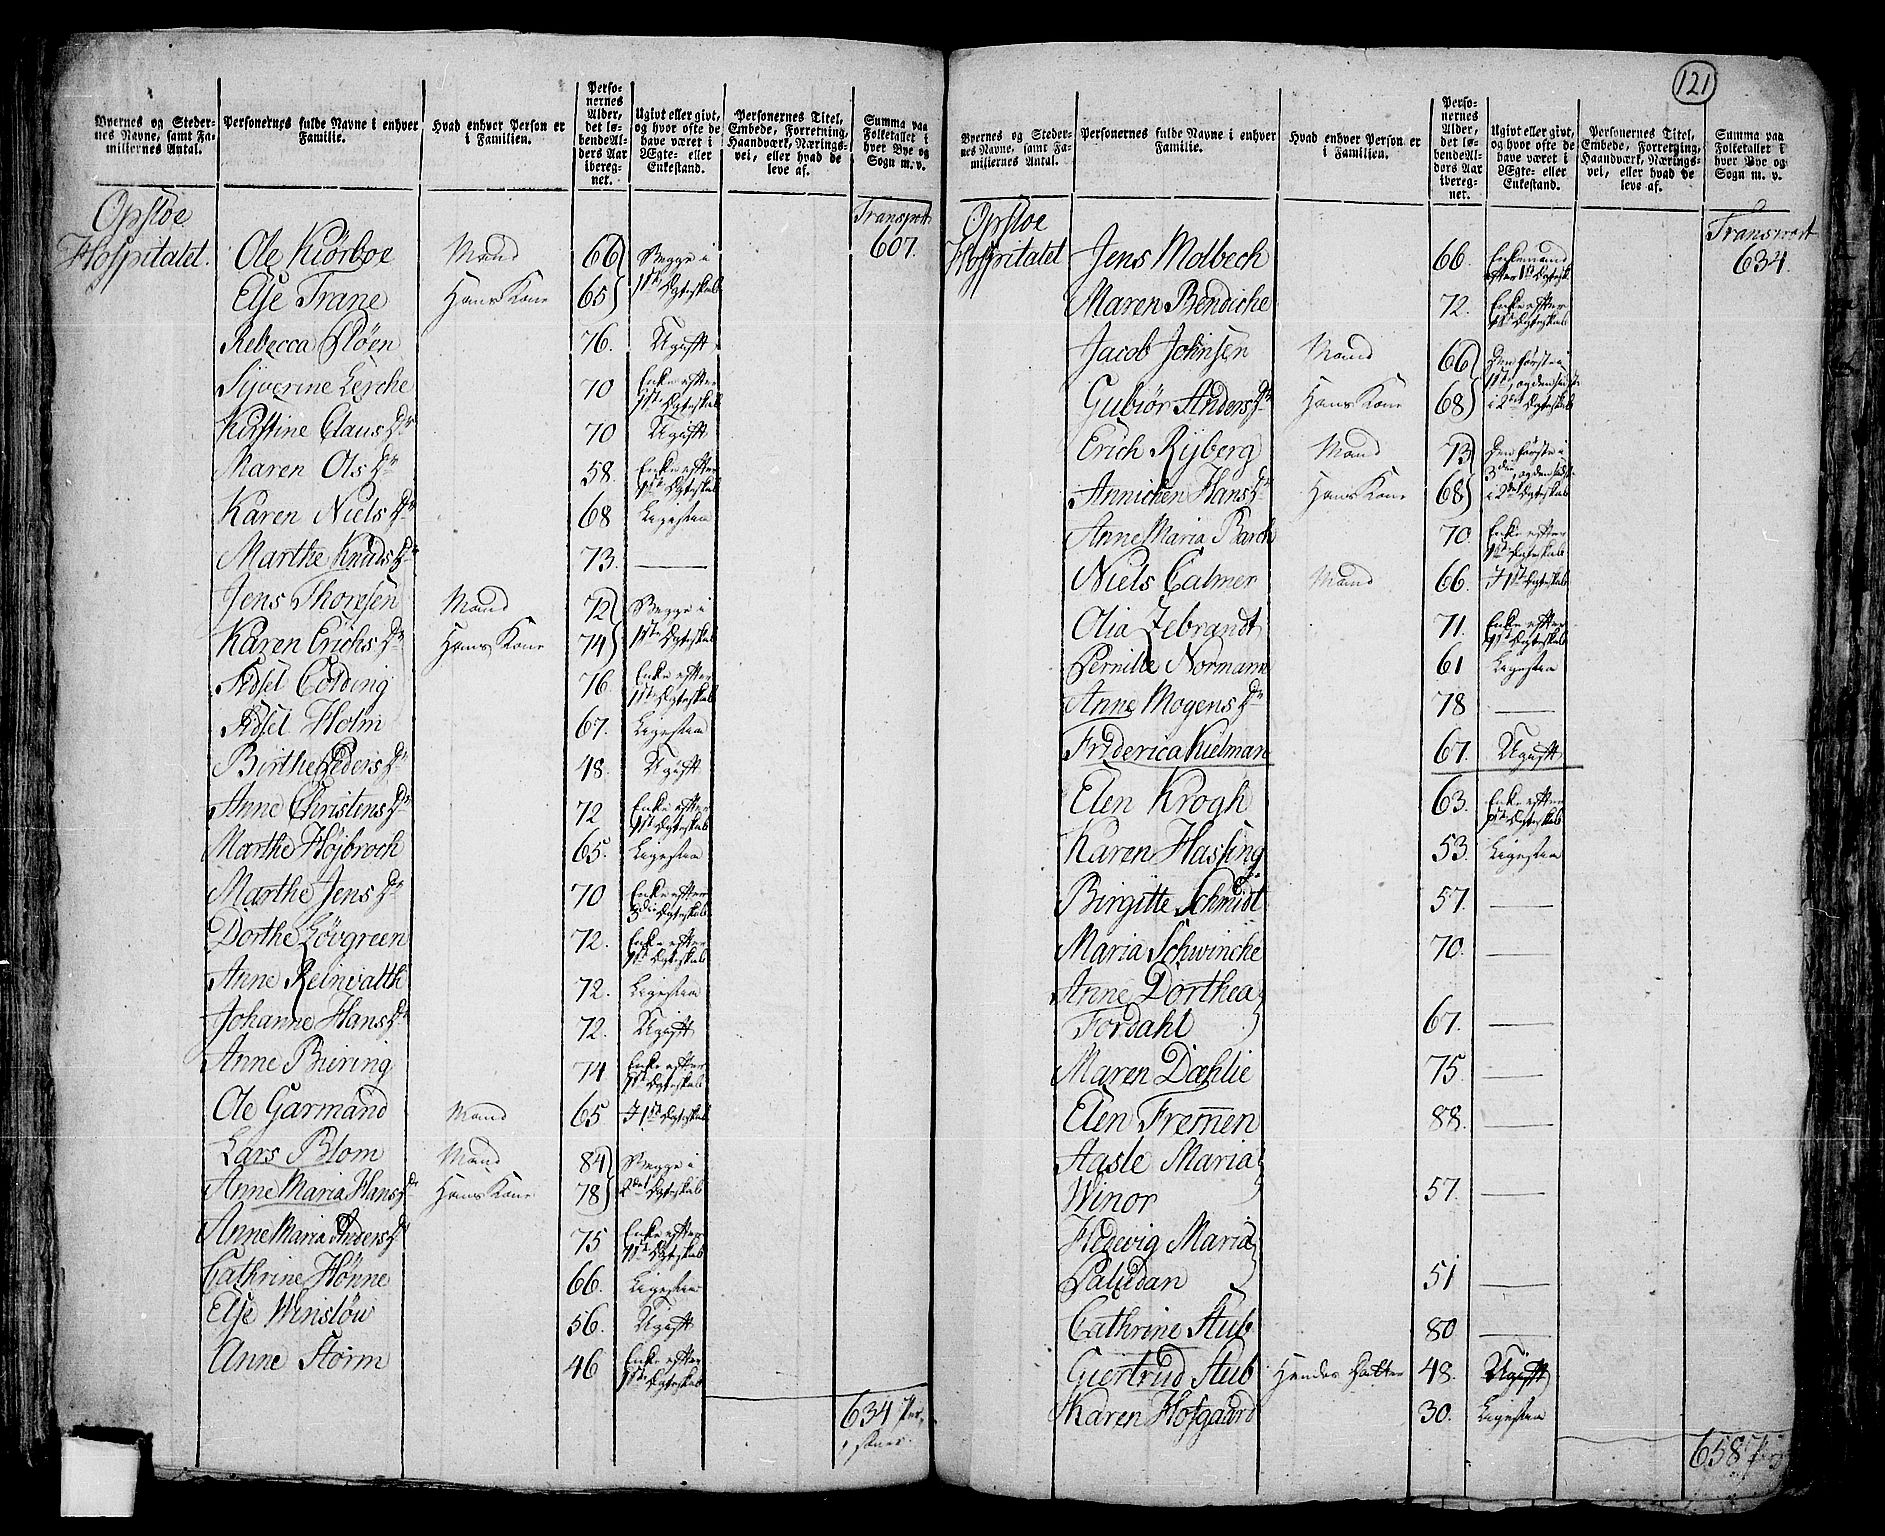 Byernes og Stedernes Navne, samt Familiernes Antal.
Personernes fulde Navne i enhver Familie.
Hvad enhver Person er i Familien.
Personernes Alder, det løbende Alders Aar iberegnet.
Ugivt eller givt, og hvor ofte de have været i Ægte- eller Enkestand.
Personernes Titel, Embede, Forretning, Haandværk, Næringsvei, eller hvad de leve af.
Summa paa Folketallet i hver Bye og Sogn m. v.
Opsloe Transport
Hospitalet. Ole Kiörboe Mand 66 Begge i 607.
Else Trane Hans Kone 65 1ste Ægteskab
Rebecca Fløen 76. Ugift
Siverine Lerche 70 Enke efter 1ste Ægteskab
Kirstine Clausdr 70 Ugift
Maren Olsdr 58. Enke efter 1ste Ægteskab
Karen Nielsdr 68 Ligesaa
Marthe Knudsdr 73. —
Jens Thomsen Mand 72 Begge i
Karen Erichsdr Hans Kone 74 1ste Ægteskab
Sidsel Colding 76. Enke efter 1ste Ægteskab
Sidsel Holm 67. Ligesaa
Birthe Pedersdr 48. Ugift
Anne Christensdr 72 Enke efter 1ste Ægteskab
Marthe Højbroch 65. Ligesaa
Marthe Jensdr 70 Enke efter 3die Ægteskab
Dorthe Løvgreen 72. Enke efter 1ste Ægteskab
Anne Reinwalth 72. Ligesaa
Johanne Hansdr 72. Ugift
Anne Biering 74 Enke efter 1ste Ægteskab
Ole Garmand Mand 65 I 1ste Ægteskab
Lars Blom Mand 84 Begge i
Anne Maria Hansdr Hans Kone 78 2det Ægteskab
Anne Maria Andersdr 75 Enke efter 1ste Ægteskab
Cathrine Hønne 66. Ligesaa
Else Winsløw 56. Ugift
Anne Storm 46 Enke efter 1ste Ægteskab
634
121
Byernes og Stedernes Navne, samt Familiernes Antal.
Personernes fulde Navne i enhver Familie.
Hvad enhver Person er i Familien.
Personernes Alder, det løbende Alders Aar iberegnet.
Ugivt eller givt, og hvor ofte de have været i Ægte- eller Enkestand.
Personernes Titel, Embede, Forretning, Haandværk, Næringsvei, eller hvad de leve af.
Summa paa Folketallet i hver Bye og Sogn m. v.
Opsloe Transport
Hospitalet Jens Molbech 66. Enkemand efter 1ste Ægtesk. 634.
Maren Bendiche 72. Enke efter 1ste Ægteskab
Jacob Johnsen Mand 66 Den første i
Gubiör Andersdr Hans Kone 68 1ste, og den sidste i 2det Ægteskab
Erich Rijberg Mand 73 Den første i
Annichen Hansdr Hans Kone 68 3die, og den sidste i 2det Ægteskab
Anne Maria Barch 70 Enke efter 1ste Ægteskab
Niels Calmer Mand 66. I 1ste Ægteskab
Olia Zebrandt 71. Enke efter 1ste Ægteskab
Pernille Normann 61 Ligesaa
Anne Mogensdr 78 —
Friderica Kielman 67. Ugift
Elen Krogh 63. Enke efter 1ste Ægteskab
Karen Hasling 53. Ligesaa
Birgitte Schmidt 57. —
Maria Schwinche 70. —
Anne Dorthea
Fordahl 67. —
Maren Dæhlie 75. —
Elen Fremen 88. —
Aasle Maria
Winor 57. —
Hedevig Maria
Paludan 51 —
Cathrine Stub 80 —
Giertrud Stub Hendes Datter 48. Ugift
Karen Hofgaard 30. Ligesaa
658